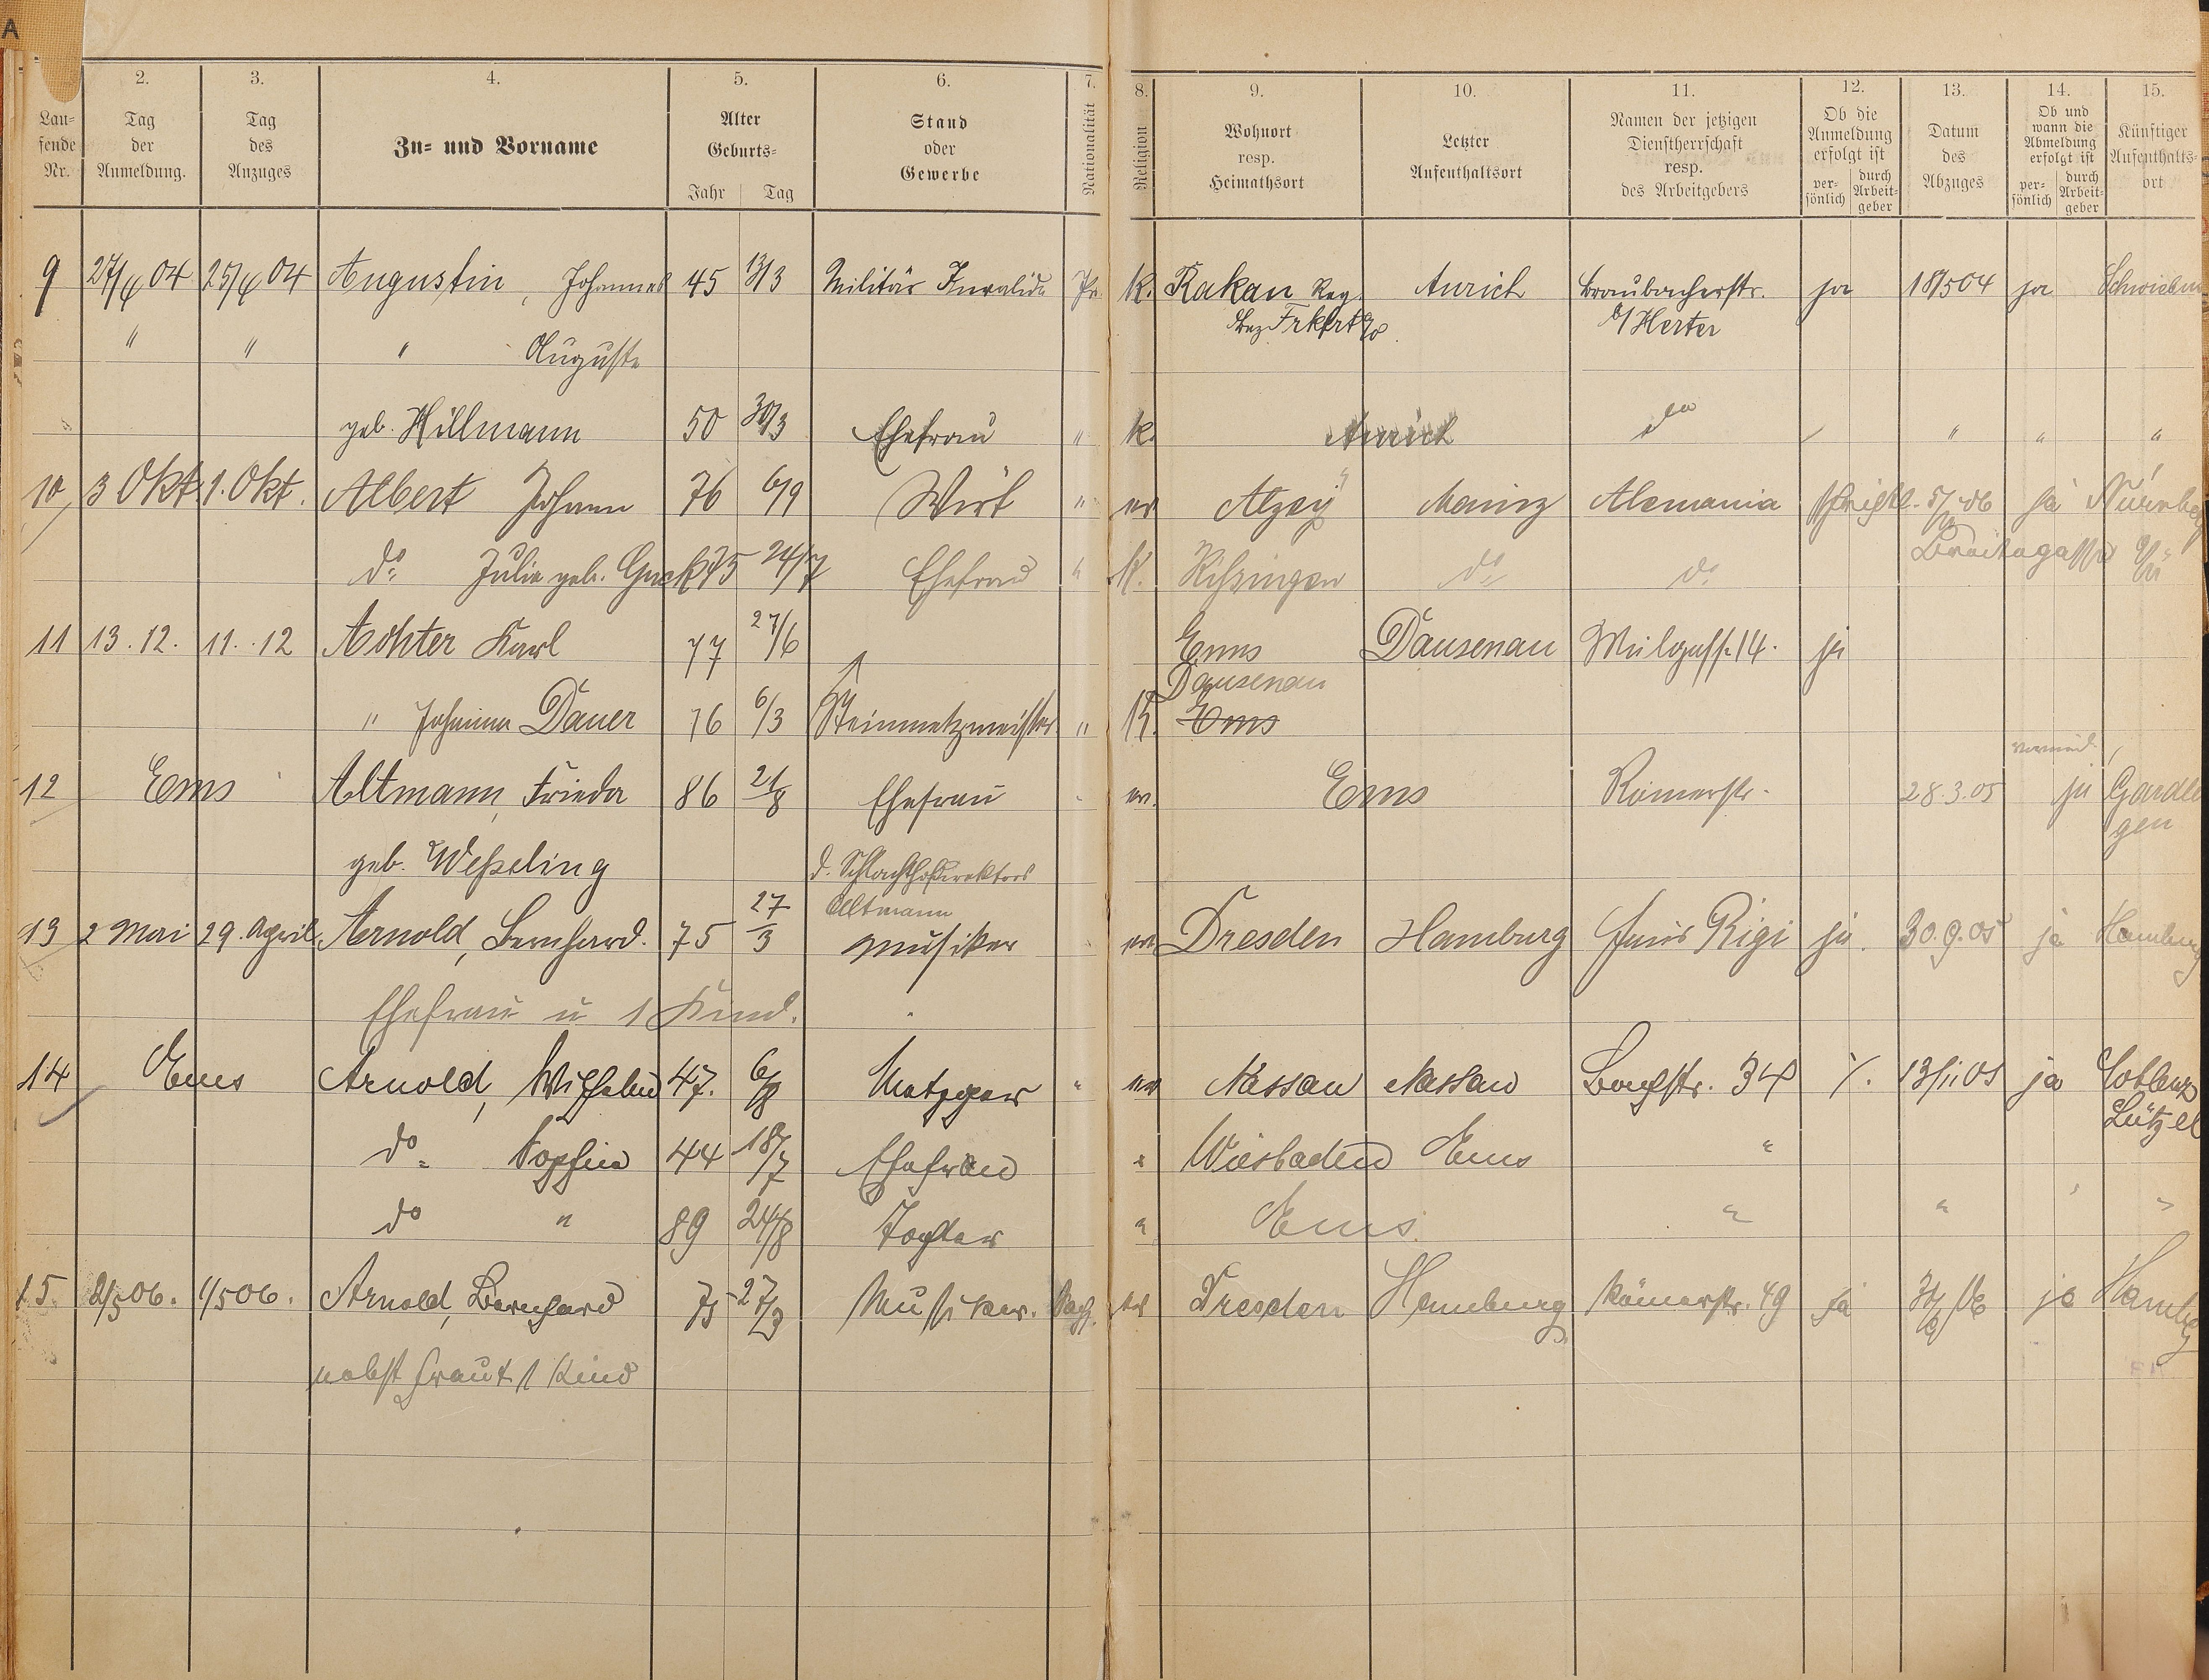 A
2. 3. 4. 5. 6. 7. 8. 9. 10. 11. 12. 13. 14. 15.
Lau-
fende
Nr.
Tag
der
Anmeldung.
Tag
des
Anzuges
Zu- und Vorname
Alter
Geburts-
Jahr Tag
Stand
oder
Gewerbe
Nationalität
Religion
Wohnort
resp.
Heimathsort
Letzter
Aufenthaltsort
Namen der jetzigen
Dienstherrschaft
resp.
des Arbeitgebers
Ob die
Anmeldung
erfolgt ist
per-
sönlich
durch
Arbeit-
geber
Datum
des
Abzuges
Ob und
wann die
Abmeldung
erfolgt ist
per-
sönlich
durch
Arbeit-
geber
Künftiger
Aufenthalts-
ort
9 27/4 04 25/4 04 Augustin, Johannes 45 13/3 Militär Invalide Pr. k. Rakau Reg. Aurich Braubacherstr. ja 18/5 04 ja
Bez Frkfrt b/ Herter
" " " Auguste
geb. Hillmann 50 30/3 Ehefrau " k. Aurich do " " "
10 3 Okt 1. Okt. Albert Johann 76 6/9 Wirt " ev Alzey Mainz Alemania ja Nürnberg
do Julie geb. 75 24/7 Ehefrau " k. Kissingen do do
11 13.12. 11.12 Achter Karl 77 27/6 Ems Dausenau 14. ja
Dausenau
" Johanna Dauer 76 6/3 Steinmetzmeister " k. Ems
12 Ems Altmann, Frieda 86 21/8 Ehefrau ev. Ems Römerstr. 28.3.05 ja Gardle
gen
geb. Weßeling d. Schlachthofdirektors
Altmann
13 2 Mai 29. April Arnold, Bernhard. 75 27/3 Musiker ev Dresden Hamburg Haus Rigi ja. 30.9.05 ja Hamburg
Ehefrau u 1 Kind.
14 Ems Arnold, Wilhelm 47. 6/8 Metzger " ev Nassau Nassau 34 13/11 05 ja Coblenz
Lützel
do Sophie 44 18/7 Ehefrau " Wiesbaden Ems "
do " 89 24/8 Tochter " Ems. " " "
15 2/5 06. 1/5 06. Arnold, Bernhard 75 27/3 Musiker. ev Dresden Hamburg Römerstr. 49 ja ja Hambg
nebst Frau + 1 Kind